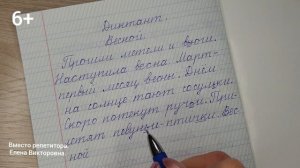 6+
Диктант.
Весной.
Прошли метели и вьюги.
Наступила весна. Март-
первый месяц весны. Днём
на солнце тают сосульки.
Скоро потекут ручьи. При-
летят певуньи-птички. Вес-
ной
Вместо репетитора.
Елена Викторовна